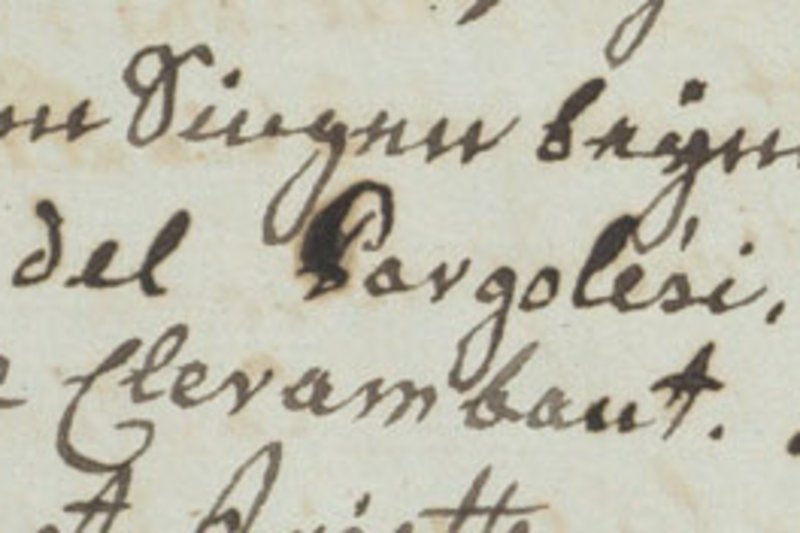 Singen beÿm
del Pargolesi,
Clerambaut.
et Ariette